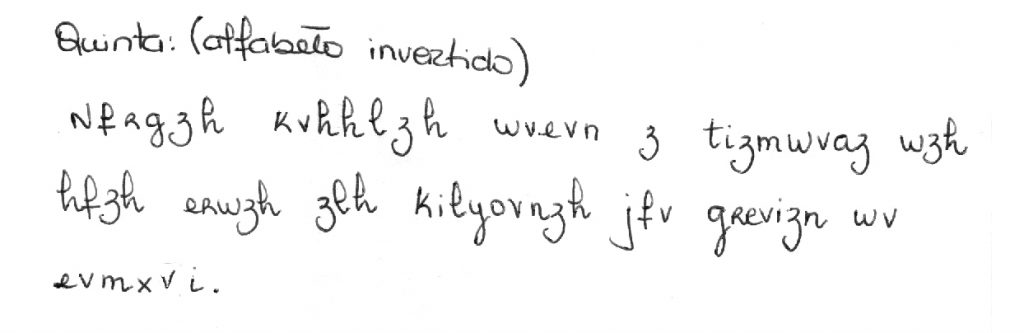 Quinta: (alfabeto invertido)
Nfrgzh kvhhlzh wvevn z tizmwvaz wzh
hfzh erwzh zlh kilyovnzh jfv grevizn wv
evmxvi.